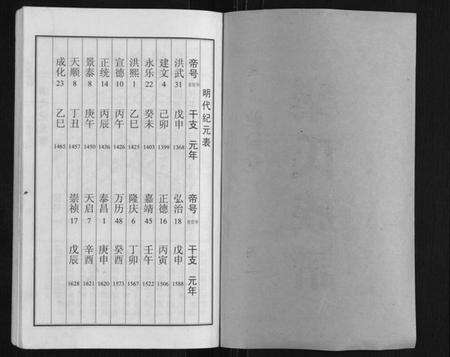 明代纪元表
帝号 干支 元年
洪武 31 戊申 1368
建文 4 己卯 1399
永乐 22 癸未 1403
洪熙 1 乙巳 1425
宣德 10 丙午 1426
正统 14 丙辰 1436
景泰 8 庚午 1450
天顺 8 丁丑 1457
成化 23 乙巳 1465
帝号 干支 元年
弘治 18 戊申 1588
正德 16 丙寅 1506
嘉靖 45 壬午 1522
隆庆 6 丁卯 1567
万历 48 癸酉 1573
泰昌 1 庚申 1620
天启 7 辛酉 1621
崇祯 17 戊辰 1628